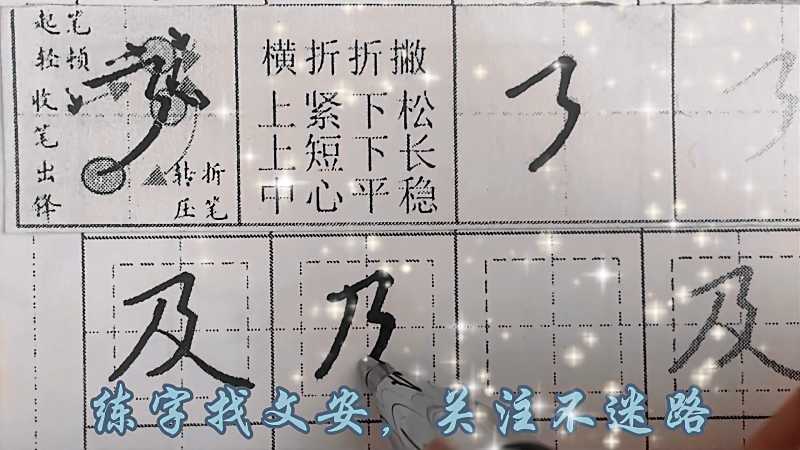 起笔
轻横
收笔出锋
转折
压笔
横折折撇
上紧下松
上短下长
中心平稳
及
乃
及
练字找文安，关注不迷路